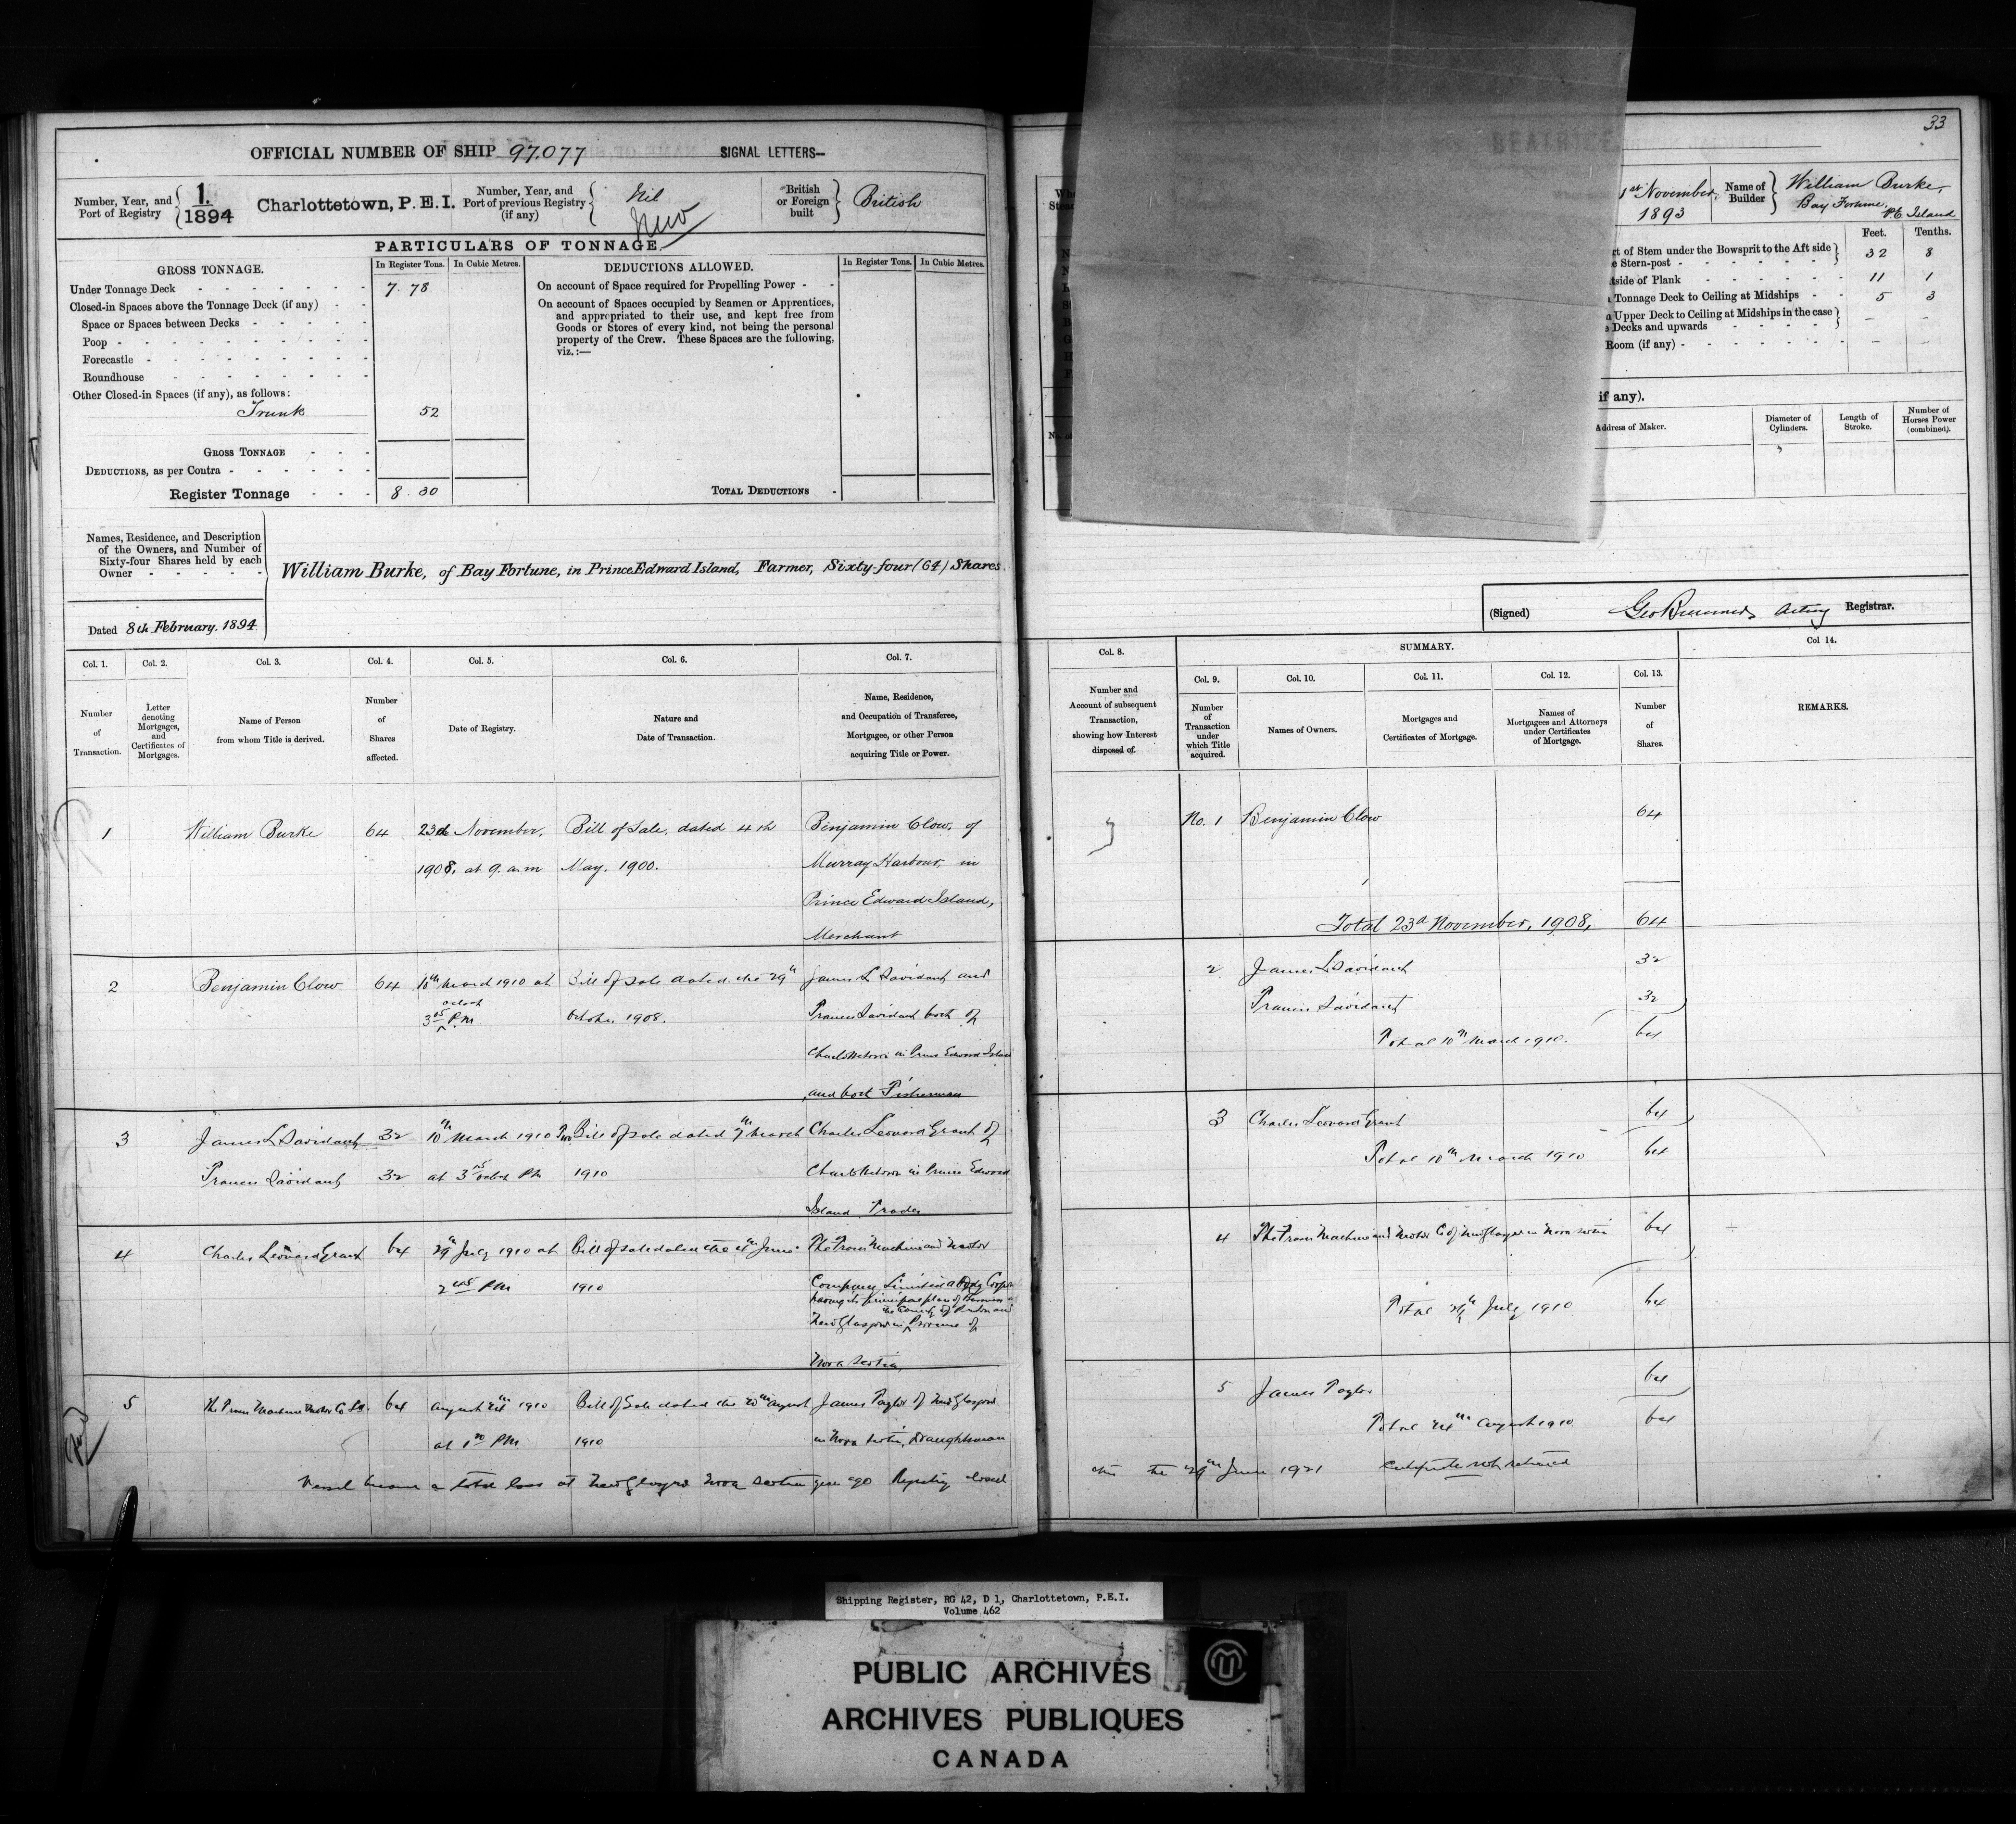 33
OFFICIAL NUMBER OF SHIP 97.077 SIGNAL LETTERS—
Number, Year, and Port of Registry 1. 1894 Charlottetown, P.E.I.
Number, Year, and Port of previous Registry (if any) Nil New
British or Foreign built British
1st November, 1893
Name of Builder William Burke, Bay Fortune, P.E. Island
BEATRICE
PARTICULARS OF TONNAGE.
GROSS TONNAGE. In Register Tons. In Cubic Metres.
Under Tonnage Deck 7.78
Closed-in Spaces above the Tonnage Deck (if any)
Space or Spaces between Decks
Poop
Forecastle
Roundhouse
Other Closed-in Spaces (if any), as follows:
Trunk 52
GROSS TONNAGE
DEDUCTIONS, as per Contra
Register Tonnage 8.30
DEDUCTIONS ALLOWED. In Register Tons. In Cubic Metres.
On account of Space required for Propelling Power
On account of Spaces occupied by Seamen or Apprentices,
and appropriated to their use, and kept free from
Goods or Stores of every kind, not being the personal
property of the Crew. These Spaces are the following,
viz.:—
TOTAL DEDUCTIONS
Feet. Tenths.
of Stem under the Bowsprit to the Aft side
Stern-post 32 8
of Plank 11 1
Tonnage Deck to Ceiling at Midships 5 3
Upper Deck to Ceiling at Midships in the case
Decks and upwards
Room (if any)
if any).
Address of Maker.
Diameter of Cylinders.
Length of Stroke.
Number of Horses Power (combined).
Names, Residence, and Description
of the Owners, and Number of
Sixty-four Shares held by each
Owner
William Burke, of Bay Fortune, in Prince Edward Island, Farmer, Sixty-four (64) Shares
Dated 8th February. 1894
(Signed) Acting Registrar.
Col. 1. Number of Transaction.
Col. 2. Letter denoting Mortgages, and Certificates of Mortgages.
Col. 3. Name of Person from whom Title is derived.
Col. 4. Number of Shares affected.
Col. 5. Date of Registry.
Col. 6. Nature and Date of Transaction.
Col. 7. Name, Residence, and Occupation of Transferee, Mortgagee, or other Person acquiring Title or Power.
Col. 8. Number and Account of subsequent Transaction, showing how Interest disposed of.
SUMMARY.
Col. 9. Number of Transaction under which Title acquired.
Col. 10. Names of Owners.
Col. 11. Mortgages and Certificates of Mortgage.
Col. 12. Names of Mortgagees and Attorneys under Certificates of Mortgage.
Col. 13. Number of Shares.
Col 14. REMARKS.
1 William Burke 64 23d November, Bill of Sale, dated 4th Benjamin Clow, of
1908, at 9. a.m May, 1900. Murray Harbour, in
Prince Edward Island,
Merchant
No. 1 Benjamin Clow 64
Total 23d November, 1908, 64
2 Benjamin Clow 64 10th March 1910 at Bill of sale dated the 29th James L Davidant and
3 o'clock P.M October 1908. Francis Davidant both of
Charlottetown in Prince Edward Island
and both Fisherman
2 James L Davidant 32
Francis Davidant 32
Total 10th March 1910. 64
3 James L Davidant 32 10th March 1910 Bill of sale dated 7th March Charles Leonard Grant of
Francis Davidant 32 at 3 o'clock PM 1910 Charlottetown in Prince Edward
Island Trader
3 Charles Leonard Grant 64
Total 10th March 1910 64
4 Charles Leonard Grant 64 29th July 1910 at Bill of sale dated the June The Machine and Motor
2 PM 1910 Company Limited a Body
having its principal place of Business
the County of Pictou and
New Glasgow in Province of
Nova Scotia,
4 The Machine and Motor Co of New Glasgow in Nova Scotia 64
Total July 1910 64
5 The Machine Motor Co Ltd. 64 August 24th 1910 Bill of Sale dated the 20th August James Taylor of New Glasgow
at 1 PM 1910 in Nova Scotia, Draughtsman
5 James Taylor 64
Total 24th August 1910 64
Vessel became a total loss at New Glasgow Nova Scotia years ago Registry closed
this the 29th June 1921 Certificate not returned
Shipping Register, RG 42, D 1, Charlottetown, P.E.I.
Volume 462
PUBLIC ARCHIVES
ARCHIVES PUBLIQUES
CANADA